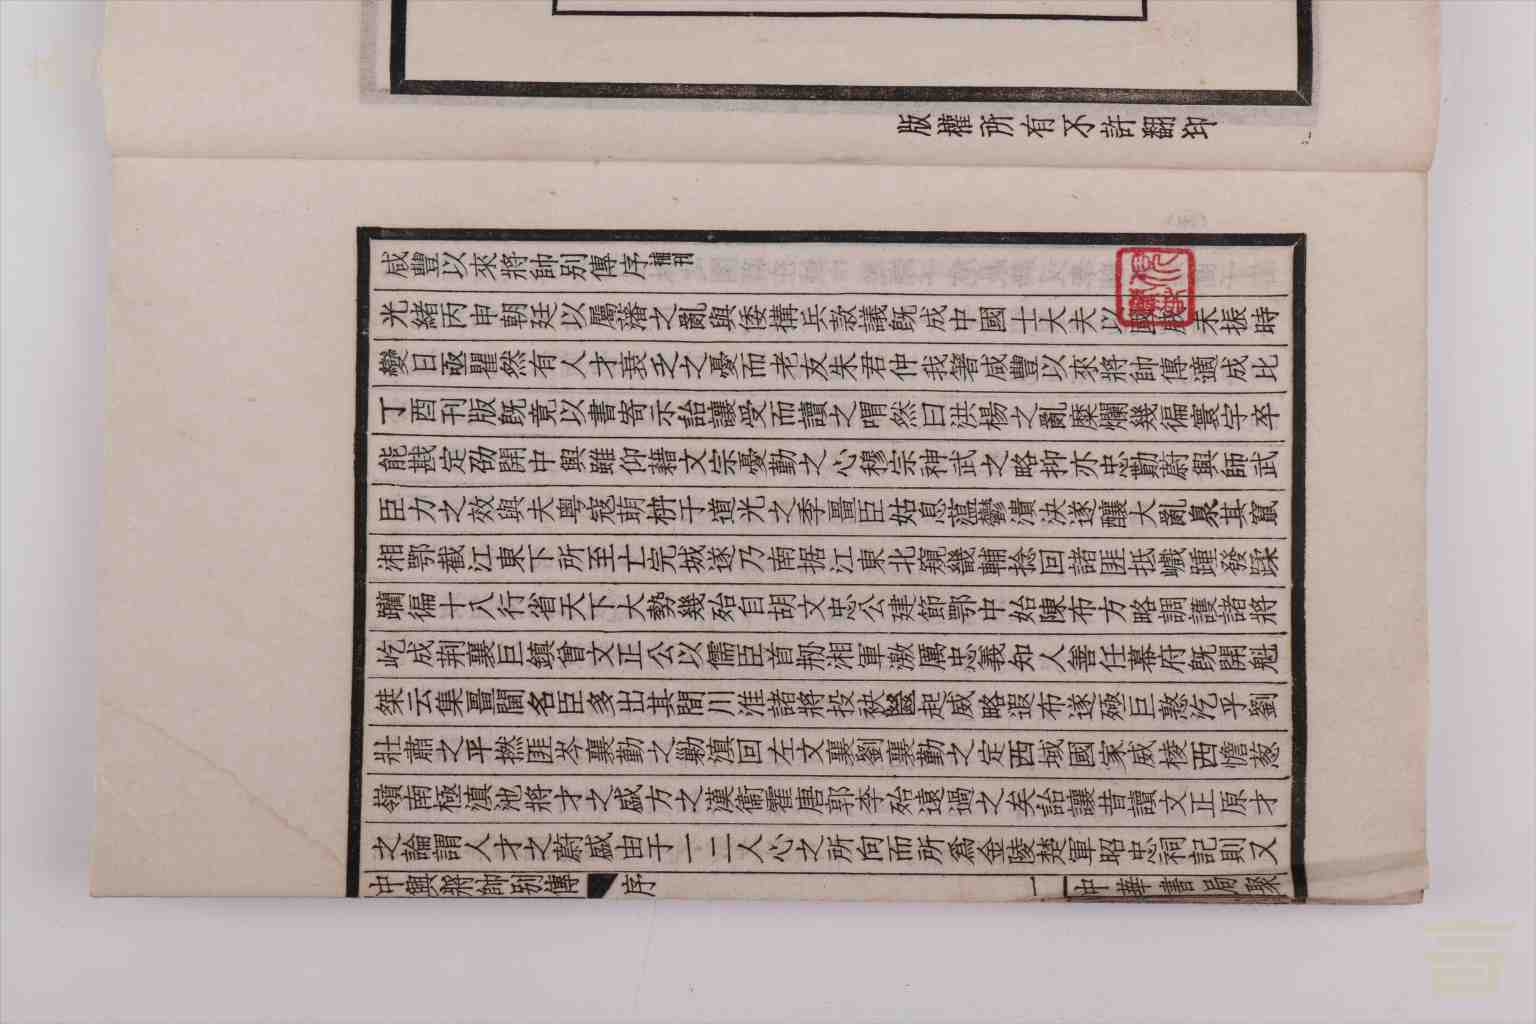 版權所有不許翻印
咸豐以來將帥別傳序補刊
光緒丙申朝廷以屬藩之亂與倭構兵款議既成中國士大夫以國威未振時
變日亟瞿然有人才衰乏之憂而老友朱君仲我箸咸豐以來將帥傳適成比
丁酉刊版既竟以書寄示詒讓受而讀之喟然曰洪楊之亂糜爛幾徧寰宇卒
能戡定芶開中興雖仰藉文宗憂勤之心穆宗神武之略抑亦忠勳蔚興師武
臣力之效與夫粵寇萌枿于道光之季畺臣姑息蘊鬱潰決遂釀大亂㬥其竄
湘鄂截江東下所至亡完城遂乃南据江東北窺畿輔捻回諸匪抵巇踵發蹂
躪徧十八行省天下大勢幾殆自胡文忠公建節鄂中始陳布方略調護諸將
屹成荆襄巨鎮曾文正公以儒臣首刱湘軍激厲忠義知人善任幕府既開魁
桀云集畺閫名臣多出其間川淮諸將投袂繄起威略遐布遂殛巨憝汔乎劉
壯肅之平撚匪岑襄勤之勦滇回左文襄劉襄勤之定西域國家威棱西憺蔥
嶺南極滇池將才之盛方之漢衞霍唐郭李殆遠過之矣詒讓昔讀文正原才
之論謂人才之蔚盛由于一二人心之所向而所爲金陵楚軍昭忠祠記則又
中興將帥別傳 序 一 中華書局聚